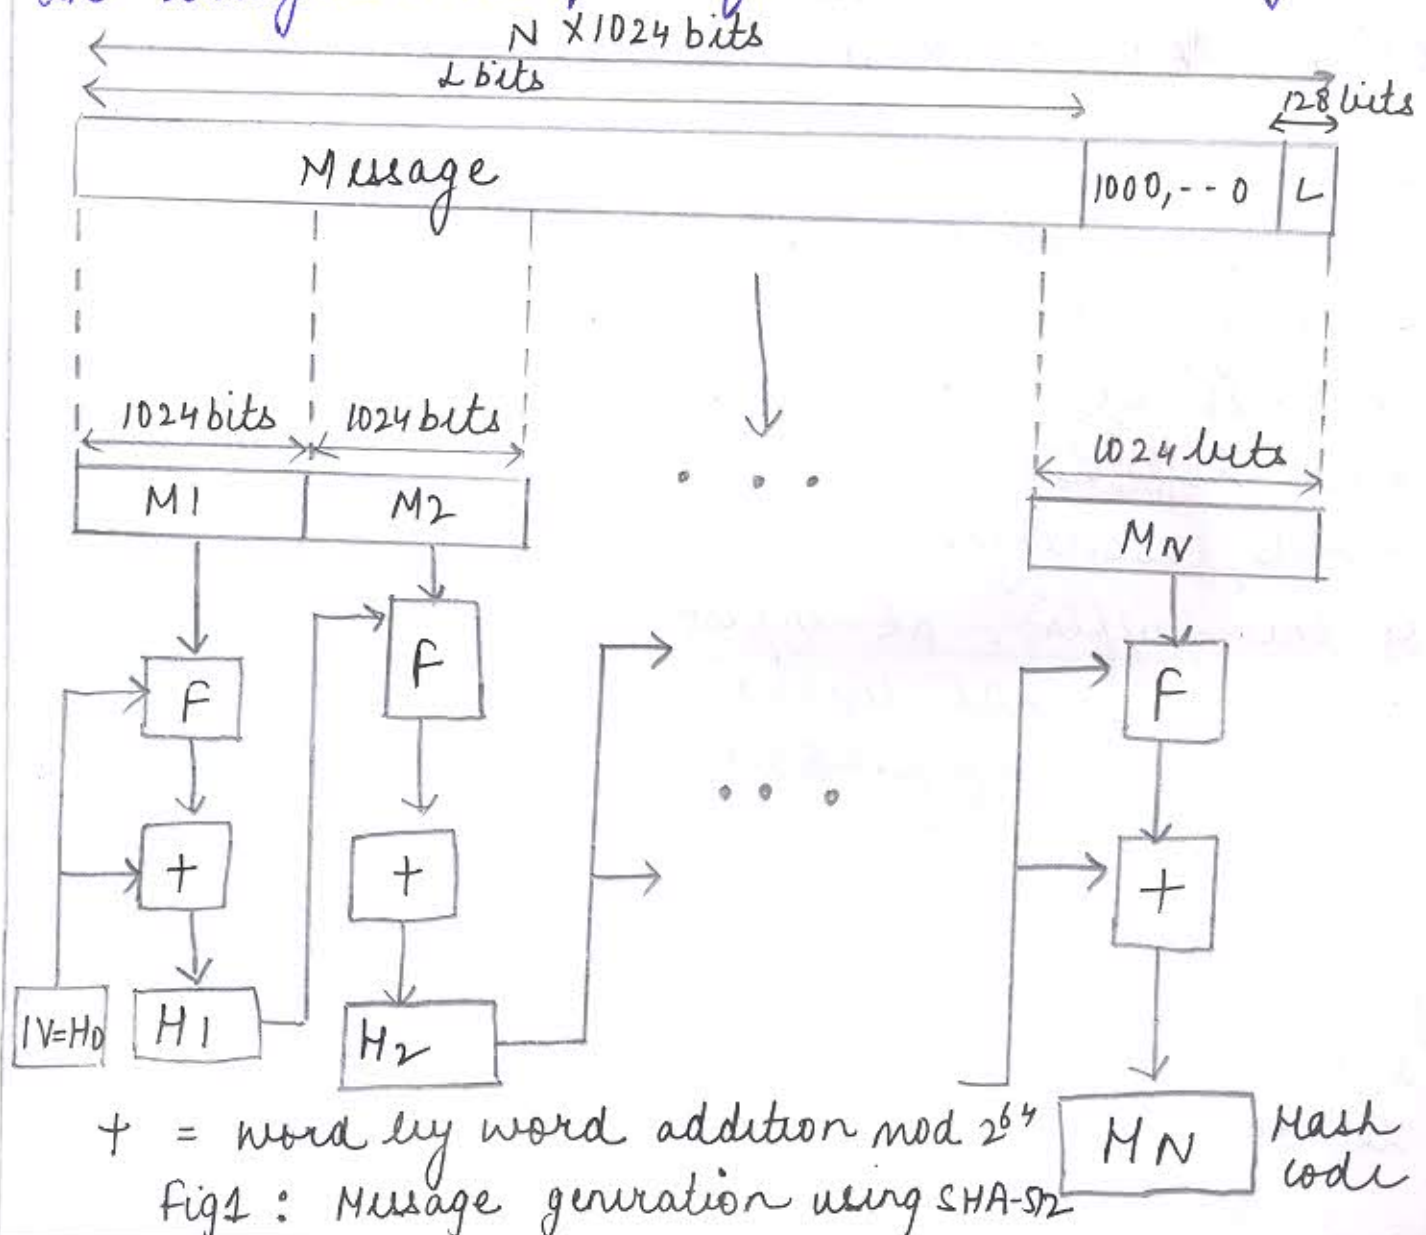 N X 1024 bits
L bits
128 bits
Message
1000,--0
L
1024 bits
1024 bits
1024 bits
M1
M2
MN
F
F
F
+
+
+
IV=H0
H1
H2
+ = word by word addition mod 2^64
HN
Hash
code
Fig1 : Message generation using SHA-512